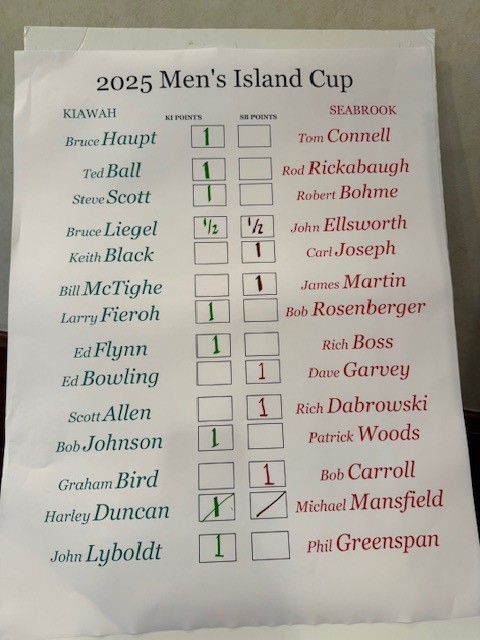 2025 Men's Island Cup
KIAWAH KI POINTS SB POINTS SEABROOK
Bruce Haupt 1 Tom Connell
Ted Ball 1 Rod Rickabaugh
Steve Scott 1 Robert Bohme
Bruce Liegel 1/2 1/2 John Ellsworth
Keith Black 1 Carl Joseph
Bill McTighe 1 James Martin
Larry Fieroh 1 Bob Rosenberger
Ed Flynn 1 Rich Boss
Ed Bowling 1 Dave Garvey
Scott Allen 1 Rich Dabrowski
Bob Johnson 1 Patrick Woods
Graham Bird 1 Bob Carroll
Harley Duncan Michael Mansfield
John Lyboldt 1 Phil Greenspan